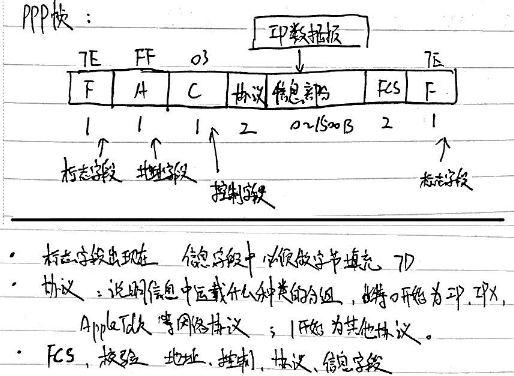 PPP帧:
IP数据报
7E FF 03 7E
F A C 协议 信息部分 FCS F
1 1 1 2 0~1500B 2 1
标志字段 地址字段 控制字段 标志字段
· 标志字段出现在 信息字段中必须做字节填充 7D
· 协议:说明信息中运载什么种类的分组,比特0开始为IP, IPX,
AppleTalk 等网络协议;1开始为其他协议。
· FCS,校验 地址、控制、协议、信息字段